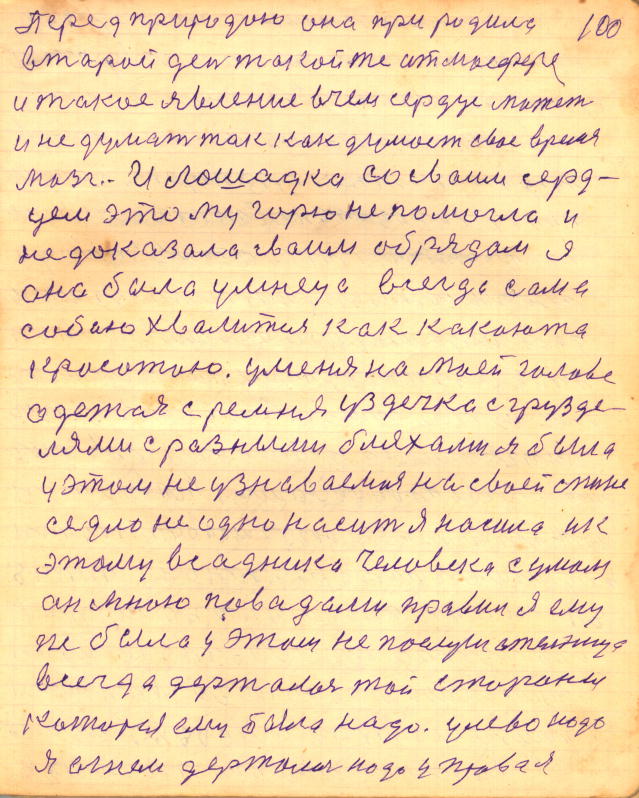 Перед природою она при родила 100
второй ден такойже атмосфере
и такое явление вчем сердце может
и не думат так как думает свое время
мозг.- И лошадка со своим серд-
цем этому горю не помогла и
не доказала сваим обрядам я
она была умнеца всегда сама
собаю хвалится как какоюта
красотою. уменя на моей голове
одетая с ремня уздечка с грузде-
лями с разными бляхами я была
у этом не узнаваемия на своей спине
седло не одно насит я насила и к
этому всадника человека с умом
он мною повадами правил я ему
же была у этом не послушателница
всегда держалас той стораны
которая ему была надо. улево надо
я огнем держалас надо у правая